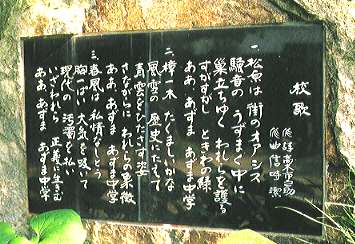 校歌
作詞
作曲 信時潔
一、松原は 街のオアシス
騒音の うずまく中に
巣立ちゆく われらを護る
すがすがし ときわの緑
ああ、あずま あずま中学
二、樟一木 たくましいかな
風雪の 歴史にたえて
青空を ひたさす姿
さながらに われらの象徴
ああ、あずま あずま中学
三、春風は 私情をとう
胸いっぱい 大気を吸って
現代の 汚濁を払い
いざされら 正義に生きむ
ああ、あずま あずま中学